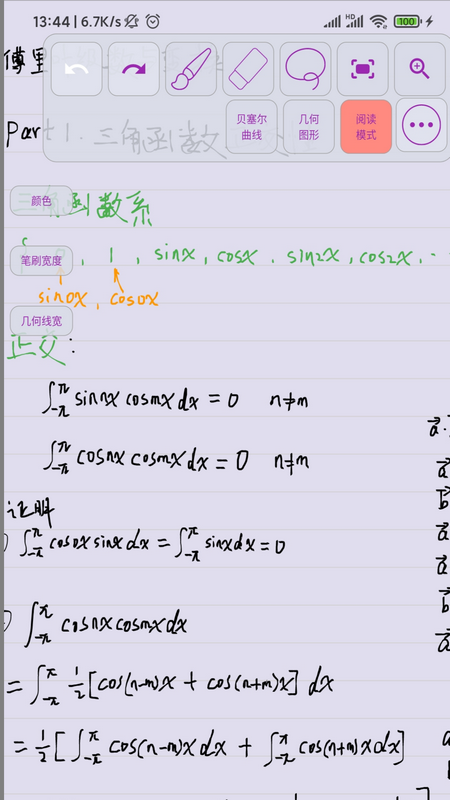 13:44 | 6.7K/s HD 100
傅里
贝塞尔曲线 几何图形 阅读模式
Part 1. 三角函数
颜色
三角函数系
笔刷宽度
1, sinx, cosx, sin2x, cos2x, ··
sin0x, cos0x
几何线宽
正交:
∫_{-π}^{π} sinnx cosmx dx = 0 n≠m
∫_{-π}^{π} cosnx cosmx dx = 0 n≠m
证明
∫_{-π}^{π} cos0x sinx dx = ∫_{-π}^{π} sinx dx = 0
∫_{-π}^{π} cosnx cosmx dx
= ∫_{-π}^{π} 1/2 [cos(n-m)x + cos(n+m)x] dx
= 1/2 [∫_{-π}^{π} cos(n-m)x dx + ∫_{-π}^{π} cos(n+m)x dx]